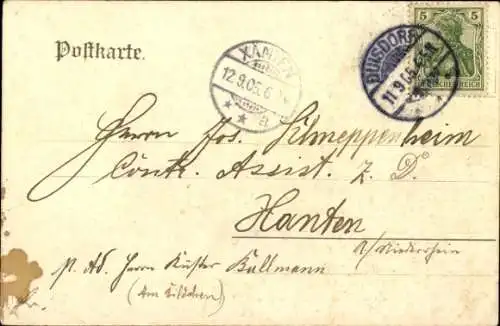 Postkarte.
XANTEN
12.9.05.6
a
DUISDORF
11.9.05
5
DEUTSCHES REICH
Herrn Jos. Schneppenheim
Contr. Assist. z. D.
Xanten
a/Niederrhein
p. Ad. Herrn Küster Kallmann